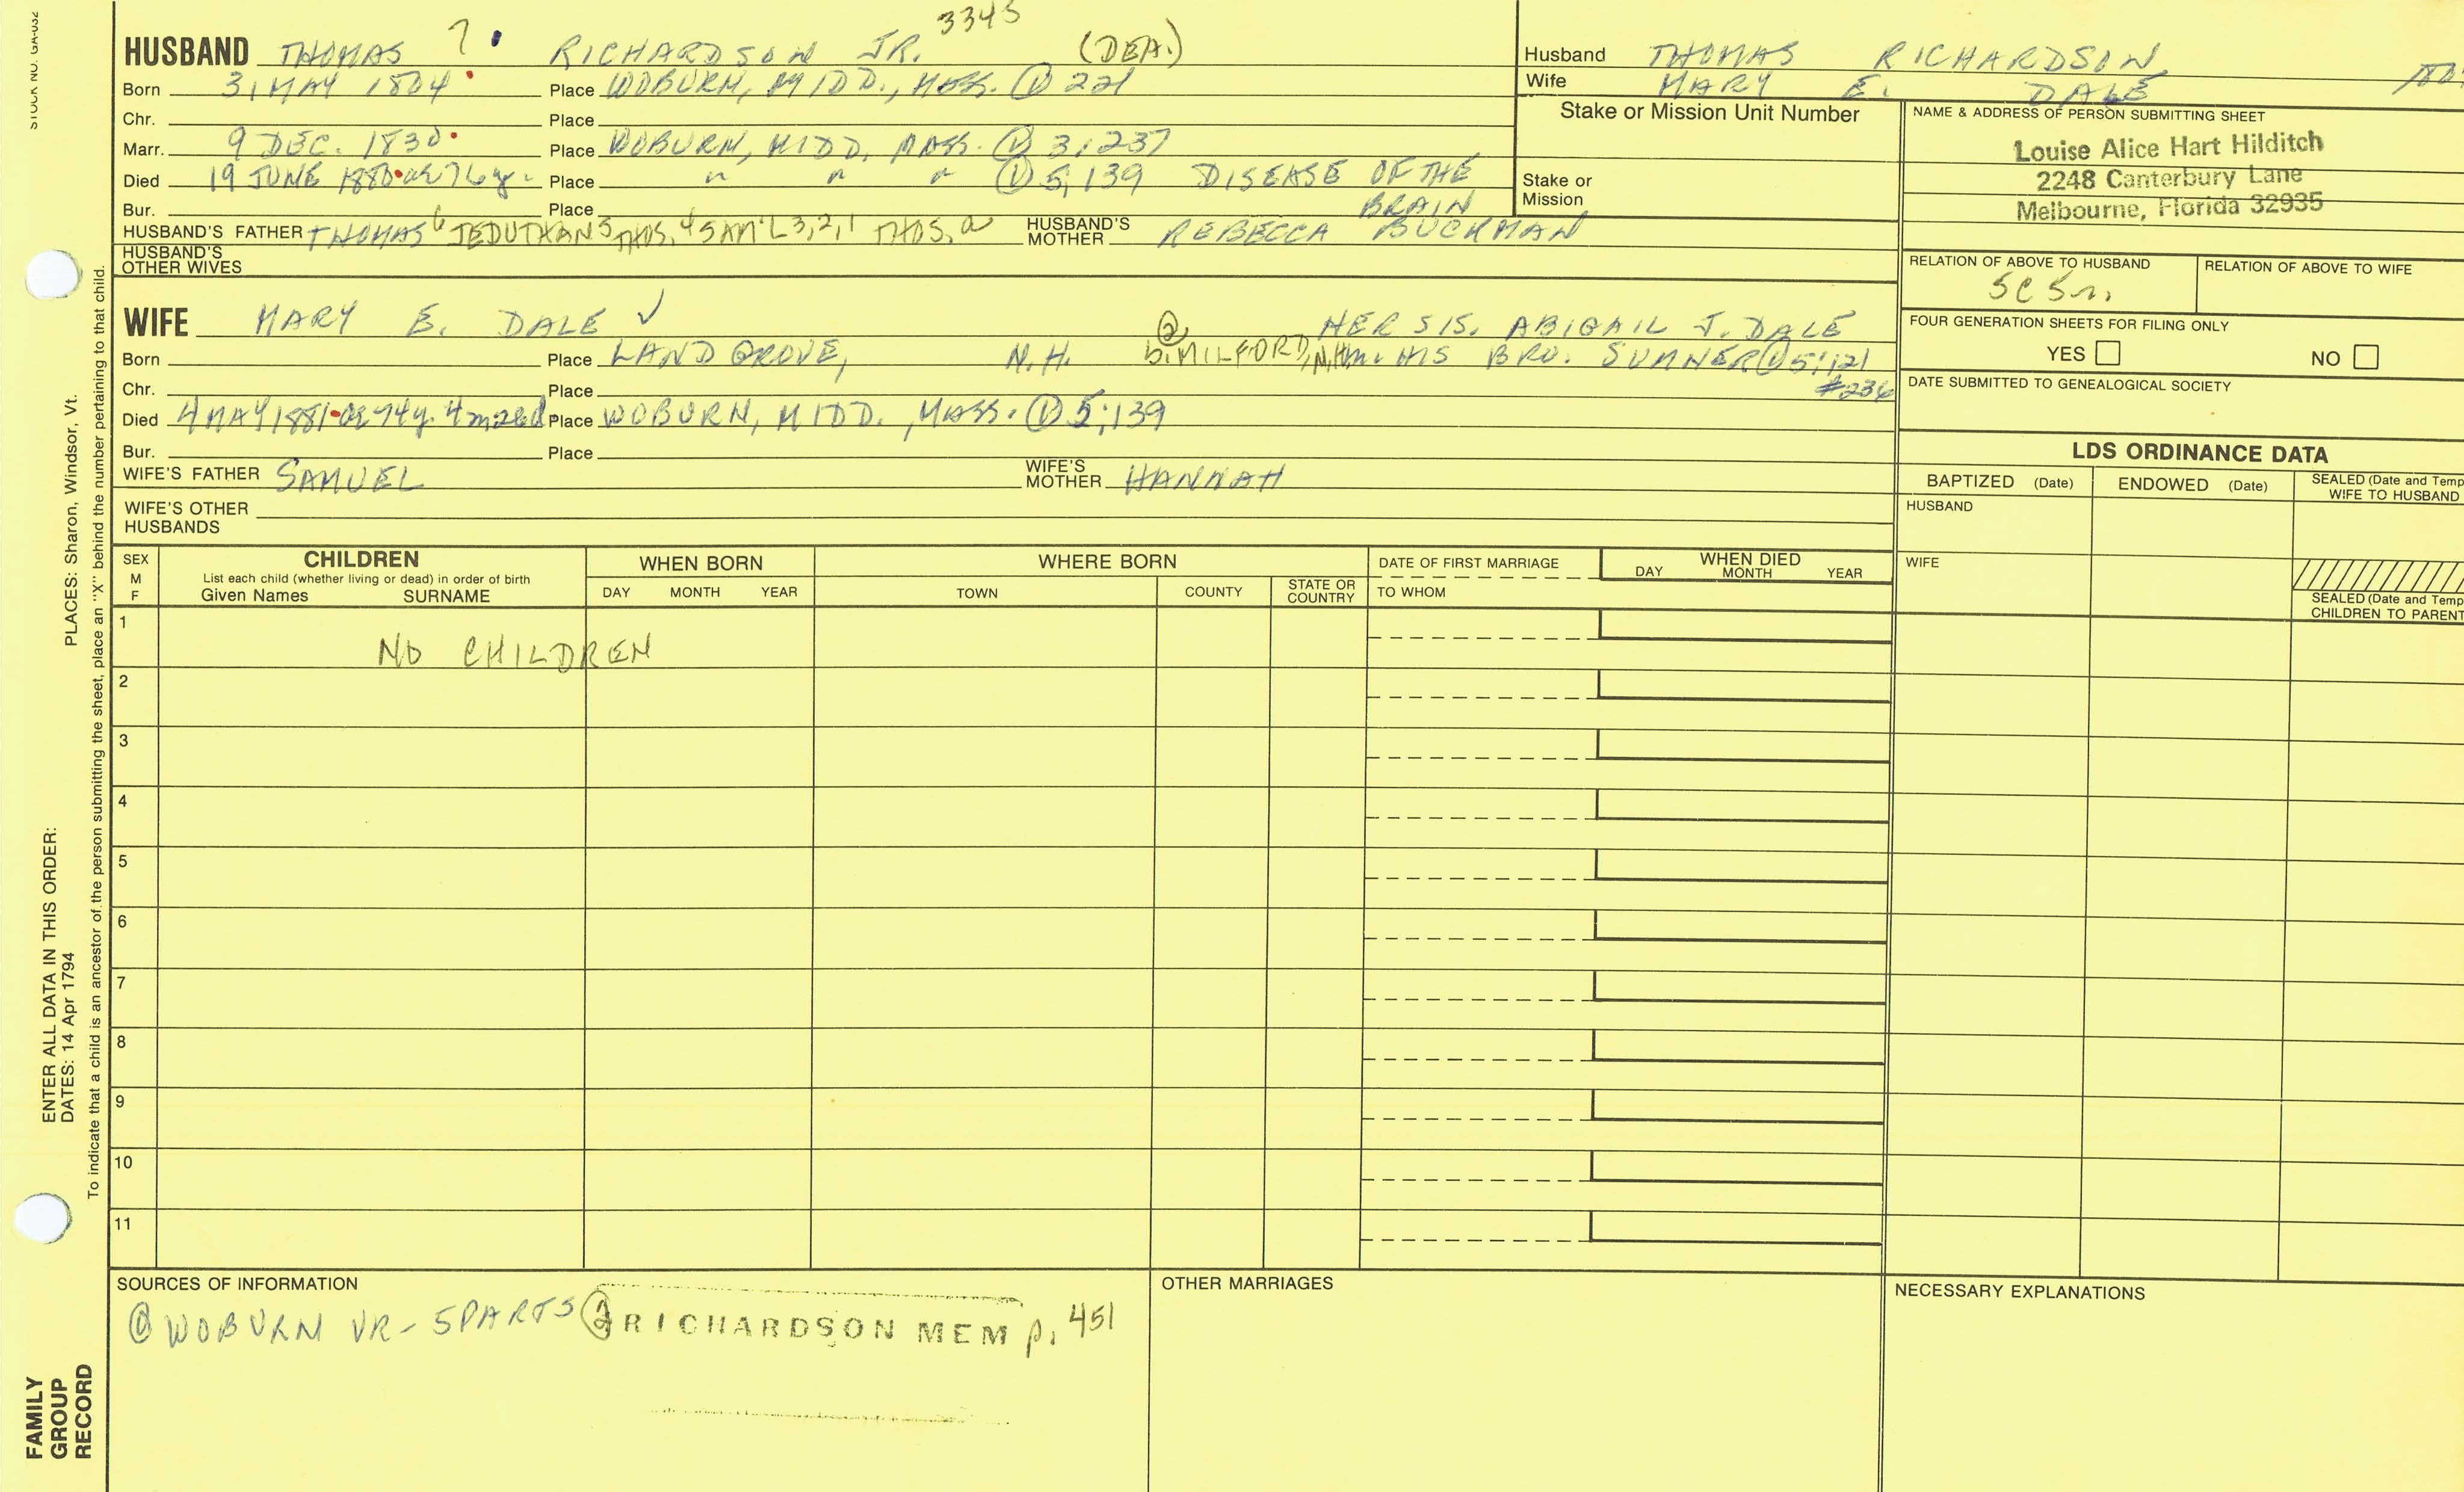 STOCK NO. GA-032
3345
HUSBAND THOMAS 7 RICHARDSON JR. (DEA.)
Born 31 MAY 1804 Place WOBURN, MIDD., MASS. ① 221
Chr. Place
Marr. 9 DEC. 1830 Place WOBURN, MIDD, MASS. ① 3:237
Died 19 JUNE 1880 ae 76y. Place " " " ① 5;139 DISEASE OF THE BRAIN
Bur. Place
HUSBAND'S FATHER THOMAS 6 JEDUTHAN 5 THOS. 4 SAM'L 3,2,1 THOS. a HUSBAND'S MOTHER REBECCA BUCKMAN
HUSBAND'S OTHER WIVES
WIFE MARY E. DALE ✓
② HER SIS. ABIGAIL J. DALE
Born Place LANDGROVE, N.H. b. MILFORD, N.H. m. HIS BRO. SUMNER ① 5:121
#236
Chr. Place
Died 4 MAY 1881 ae 74y. 4m 28d Place WOBURN, MIDD., MASS. ① 5;139
Bur. Place
WIFE'S FATHER SAMUEL WIFE'S MOTHER HANNAH
WIFE'S OTHER HUSBANDS
Husband THOMAS RICHARDSON
Wife MARY E. DALE
Stake or Mission Unit Number
Stake or Mission
NAME & ADDRESS OF PERSON SUBMITTING SHEET
Louise Alice Hart Hilditch
2248 Canterbury Lane
Melbourne, Florida 32935
RELATION OF ABOVE TO HUSBAND RELATION OF ABOVE TO WIFE
5C 5r.
FOUR GENERATION SHEETS FOR FILING ONLY
YES NO
DATE SUBMITTED TO GENEALOGICAL SOCIETY
LDS ORDINANCE DATA
BAPTIZED (Date) ENDOWED (Date) SEALED (Date and Temp
WIFE TO HUSBAND
HUSBAND
WIFE
SEALED (Date and Temp
CHILDREN TO PARENT
SEX M F
CHILDREN
List each child (whether living or dead) in order of birth
Given Names SURNAME
WHEN BORN
DAY MONTH YEAR
WHERE BORN
TOWN COUNTY STATE OR COUNTRY
DATE OF FIRST MARRIAGE
TO WHOM
WHEN DIED
DAY MONTH YEAR
1 NO CHILDREN
2
3
4
5
6
7
8
9
10
11
SOURCES OF INFORMATION
① WOBURN VR - 5 PARTS ② RICHARDSON MEM p. 451
OTHER MARRIAGES
NECESSARY EXPLANATIONS
ENTER ALL DATA IN THIS ORDER:
DATES: 14 Apr 1794 PLACES: Sharon, Windsor, Vt.
To indicate that a child is an ancestor of the person submitting the sheet, place an "X" behind the number pertaining to that child.
FAMILY
GROUP
RECORD